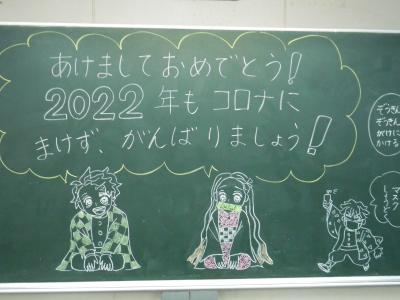 あけましておめでとう!
2022年もコロナに
まけず、がんばりましょう!
ぞうきん
ぞうきん
がけに
かける
マスク
しようぜ